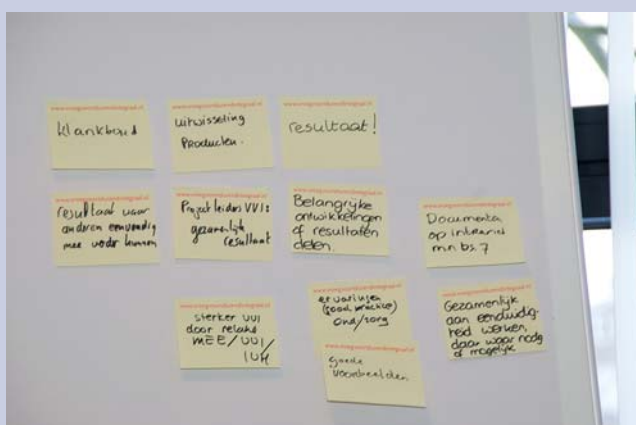 klankbord
uitwisseling
Producten.
resultaat!
resultaat waar
anderen eenvoudig
mee verder kunnen
Projectleiders VVI:
gezamenlijk
resultaat
Belangrijke
ontwikkelingen
of resultaten
delen.
Documenten
op intranet
sterker VVI
door relatie
MEE/VVI/
ervaringen
(good practice)
ond/zorg
goede
voorbeelden
Gezamenlijk
aan eenduidig-
heid werken,
daar waar nodig
of mogelijk